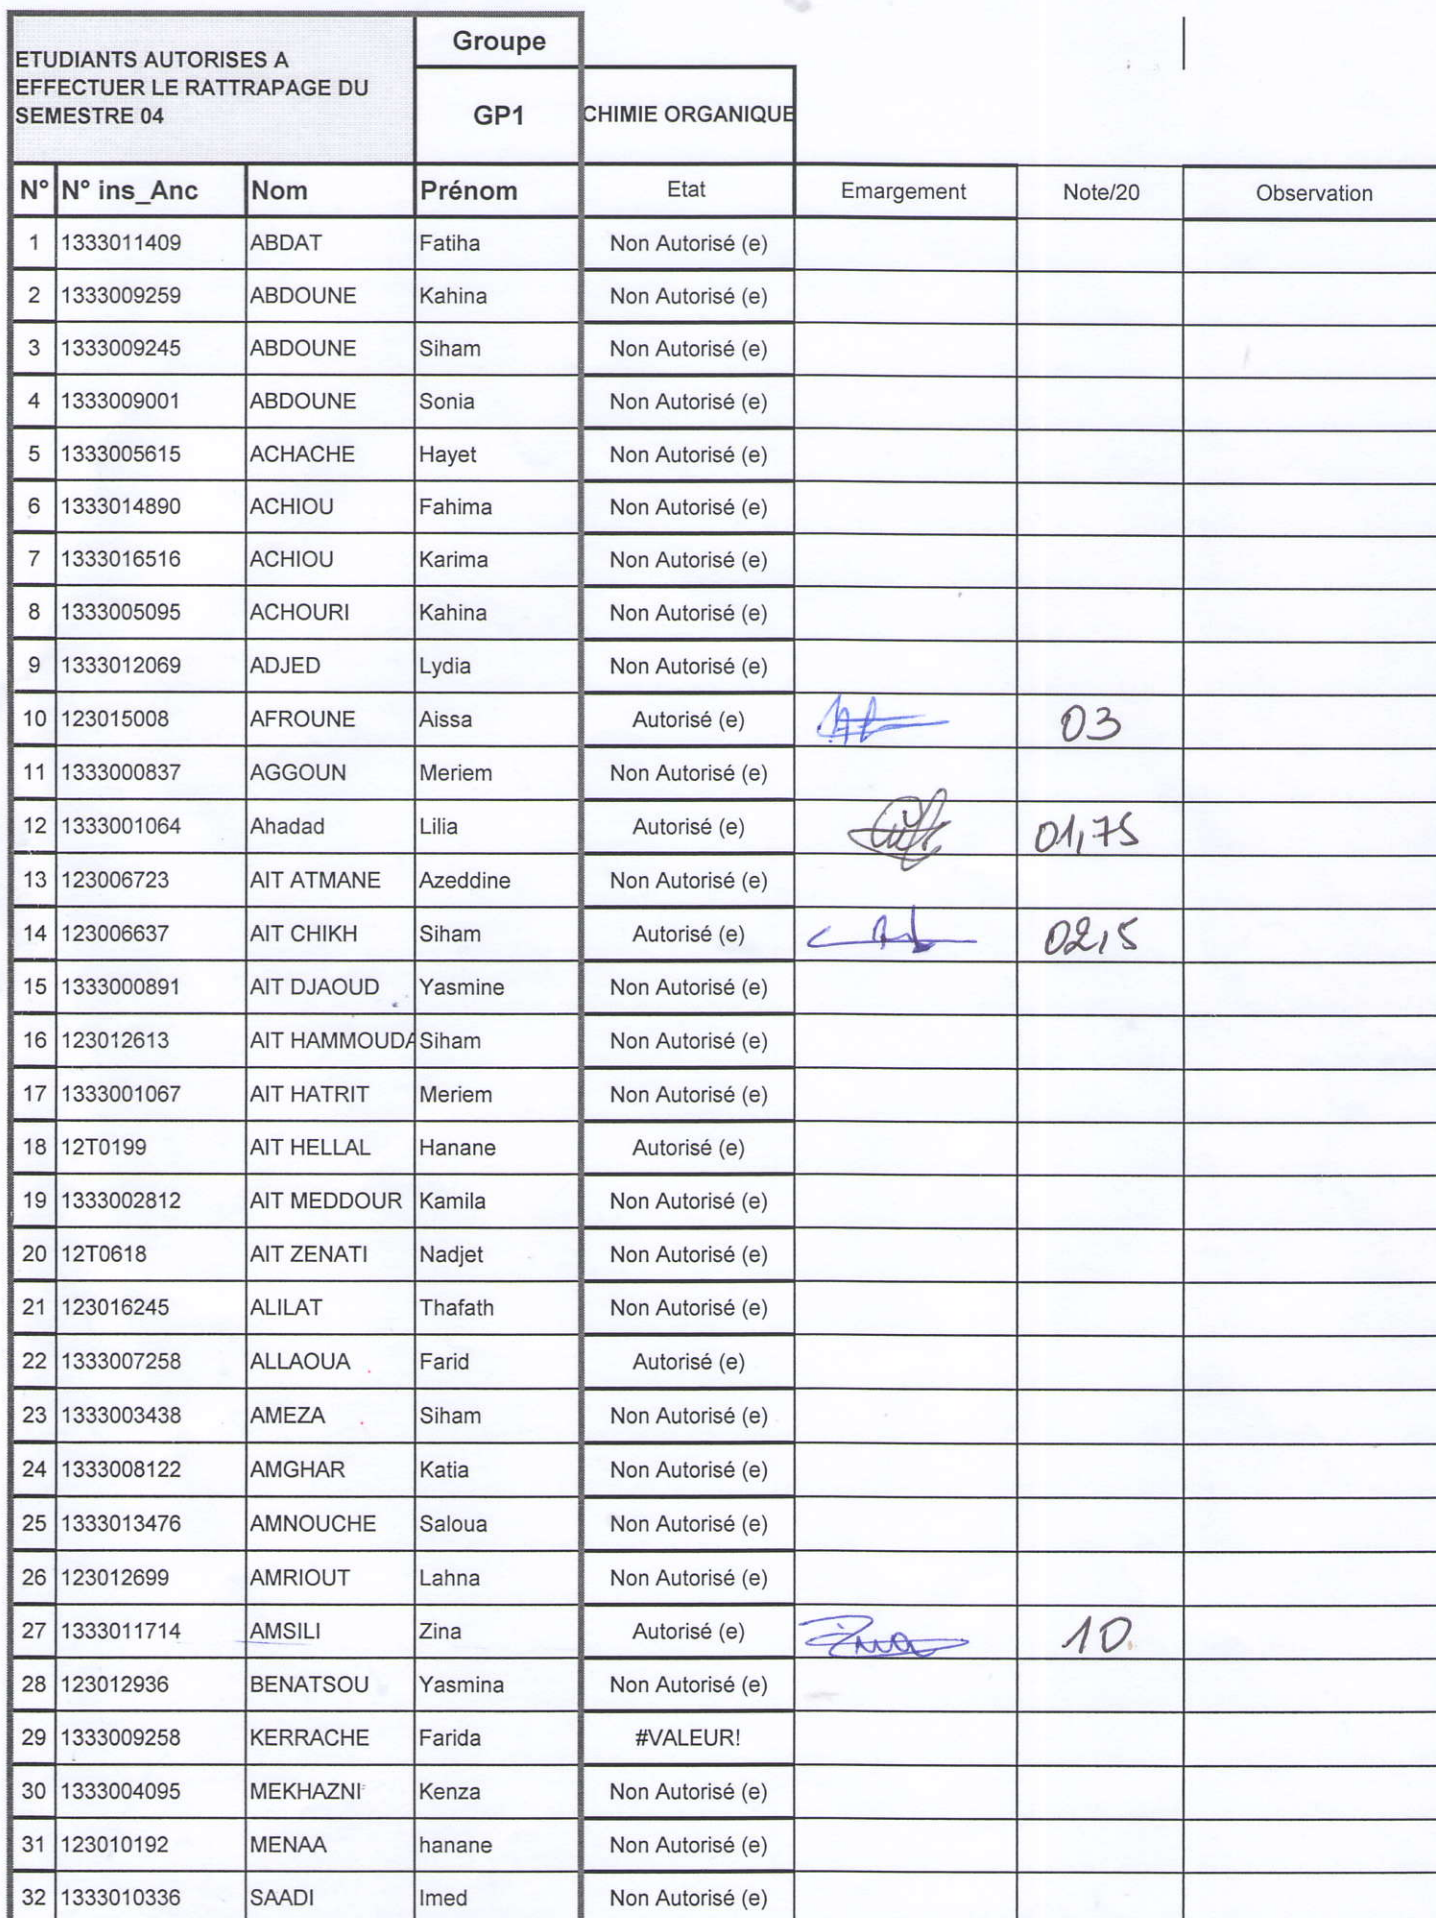 ETUDIANTS AUTORISES A
EFFECTUER LE RATTRAPAGE DU
SEMESTRE 04
Groupe
GP1
CHIMIE ORGANIQUE
N° N° ins_Anc Nom Prénom Etat Emargement Note/20 Observation
1 1333011409 ABDAT Fatiha Non Autorisé (e)
2 1333009259 ABDOUNE Kahina Non Autorisé (e)
3 1333009245 ABDOUNE Siham Non Autorisé (e)
4 1333009001 ABDOUNE Sonia Non Autorisé (e)
5 1333005615 ACHACHE Hayet Non Autorisé (e)
6 1333014890 ACHIOU Fahima Non Autorisé (e)
7 1333016516 ACHIOU Karima Non Autorisé (e)
8 1333005095 ACHOURI Kahina Non Autorisé (e)
9 1333012069 ADJED Lydia Non Autorisé (e)
10 123015008 AFROUNE Aissa Autorisé (e) 03
11 1333000837 AGGOUN Meriem Non Autorisé (e)
12 1333001064 Ahadad Lilia Autorisé (e) 01,75
13 123006723 AIT ATMANE Azeddine Non Autorisé (e)
14 123006637 AIT CHIKH Siham Autorisé (e) 02,5
15 1333000891 AIT DJAOUD Yasmine Non Autorisé (e)
16 123012613 AIT HAMMOUDA Siham Non Autorisé (e)
17 1333001067 AIT HATRIT Meriem Non Autorisé (e)
18 12T0199 AIT HELLAL Hanane Autorisé (e)
19 1333002812 AIT MEDDOUR Kamila Non Autorisé (e)
20 12T0618 AIT ZENATI Nadjet Non Autorisé (e)
21 123016245 ALILAT Thafath Non Autorisé (e)
22 1333007258 ALLAOUA Farid Autorisé (e)
23 1333003438 AMEZA Siham Non Autorisé (e)
24 1333008122 AMGHAR Katia Non Autorisé (e)
25 1333013476 AMNOUCHE Saloua Non Autorisé (e)
26 123012699 AMRIOUT Lahna Non Autorisé (e)
27 1333011714 AMSILI Zina Autorisé (e) Zina 10
28 123012936 BENATSOU Yasmina Non Autorisé (e)
29 1333009258 KERRACHE Farida #VALEUR!
30 1333004095 MEKHAZNI Kenza Non Autorisé (e)
31 123010192 MENAA hanane Non Autorisé (e)
32 1333010336 SAADI Imed Non Autorisé (e)